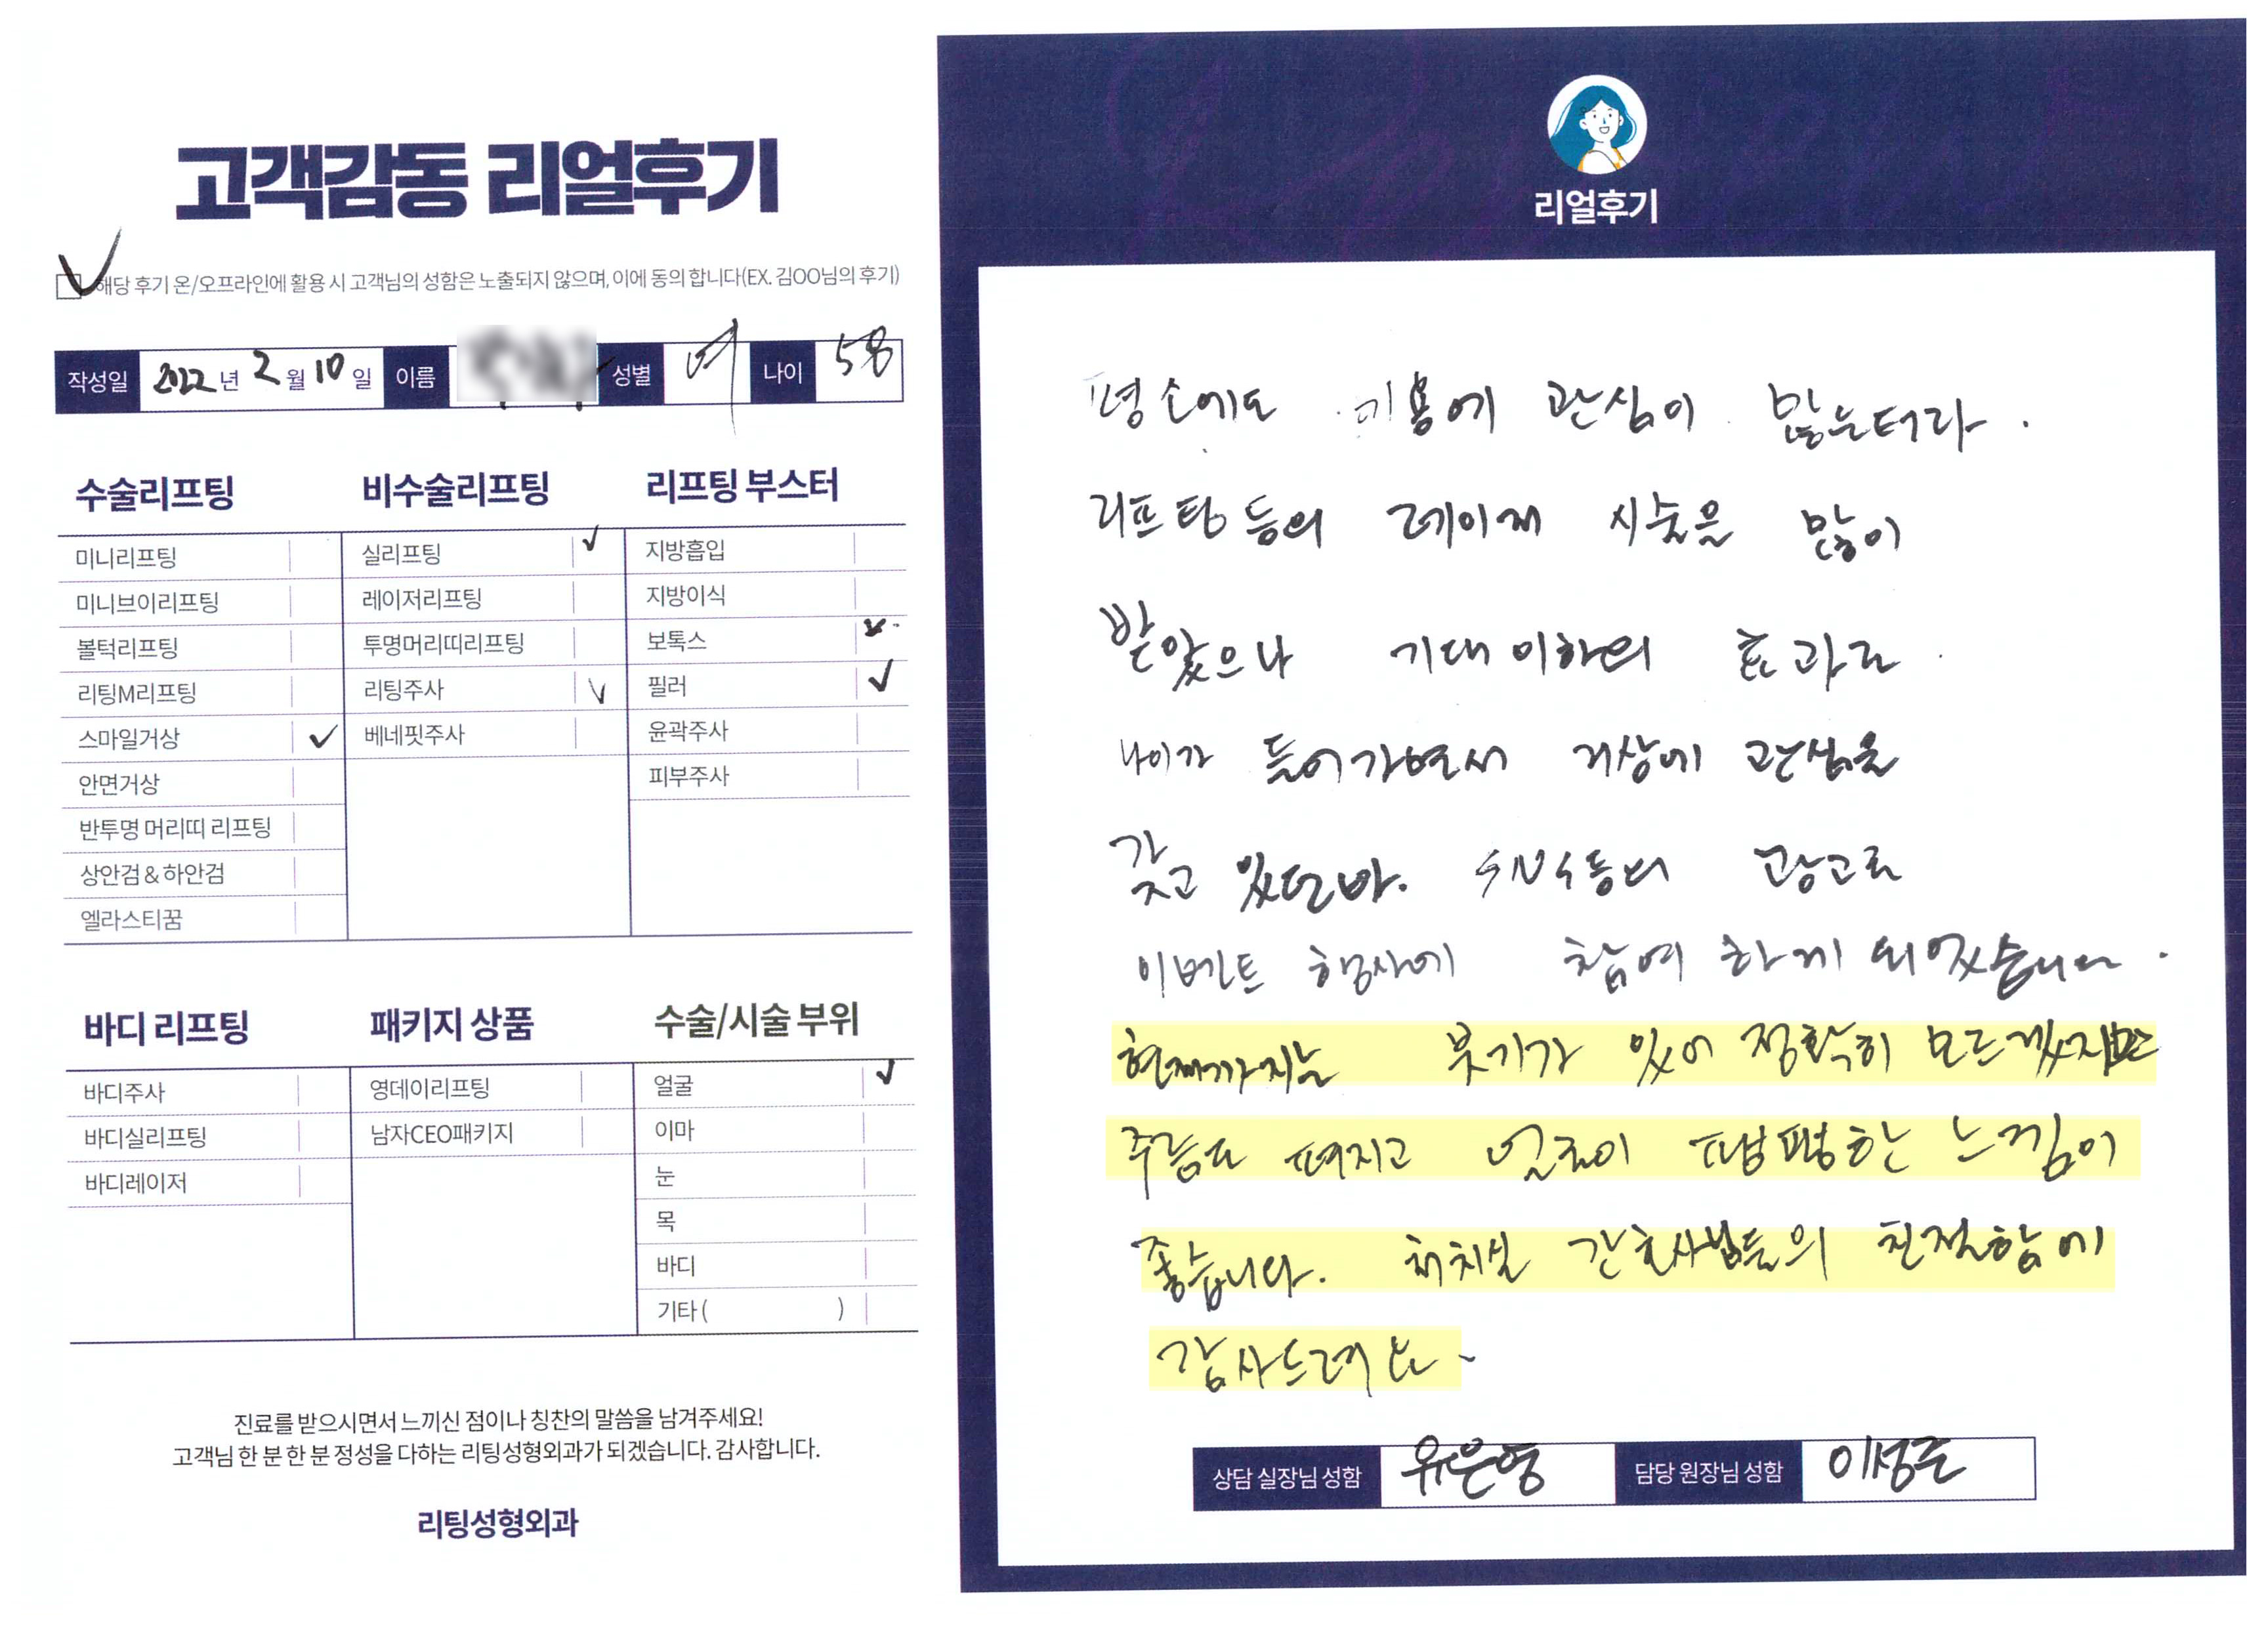 고객감동 리얼후기
해당 후기 온/오프라인에 활용 시 고객님의 성함은 노출되지 않으며, 이에 동의 합니다(EX. 김OO님의 후기)
작성일 2022 년 2 월 10 일 이름 성별 여 나이 58
수술리프팅
미니리프팅
미니브이리프팅
볼턱리프팅
리팅M리프팅
스마일거상
안면거상
반투명 머리띠 리프팅
상안검 & 하안검
엘라스티꿈
비수술리프팅
실리프팅
레이저리프팅
투명머리띠리프팅
리팅주사
베네핏주사
리프팅 부스터
지방흡입
지방이식
보톡스
필러
윤곽주사
피부주사
바디 리프팅
바디주사
바디실리프팅
바디레이저
패키지 상품
영데이리프팅
남자CEO패키지
수술/시술 부위
얼굴
이마
눈
목
바디
기타 ( )
진료를 받으시면서 느끼신 점이나 칭찬의 말씀을 남겨주세요!
고객님 한 분 한 분 정성을 다하는 리팅성형외과가 되겠습니다. 감사합니다.
리팅성형외과
리얼후기
평소에도 미용에 관심이 많은터라.
리프팅 등의 레이저 시술을 많이
받았으나 기대 이하의 효과로
나이가 들어가면서 거상에 관심을
갖고 있던바. 등의 광고로
이벤트 행사에 참여 하게 되었습니다.
현재까지는 붓기가 있어 정확히 모르겠지만
주름도 펴지고 얼굴이 땡땡한 느낌이
좋습니다. 처치실 간호사님들의 친절함에
감사드려요~
상담 실장님 성함 유은영 담당 원장님 성함 이성준